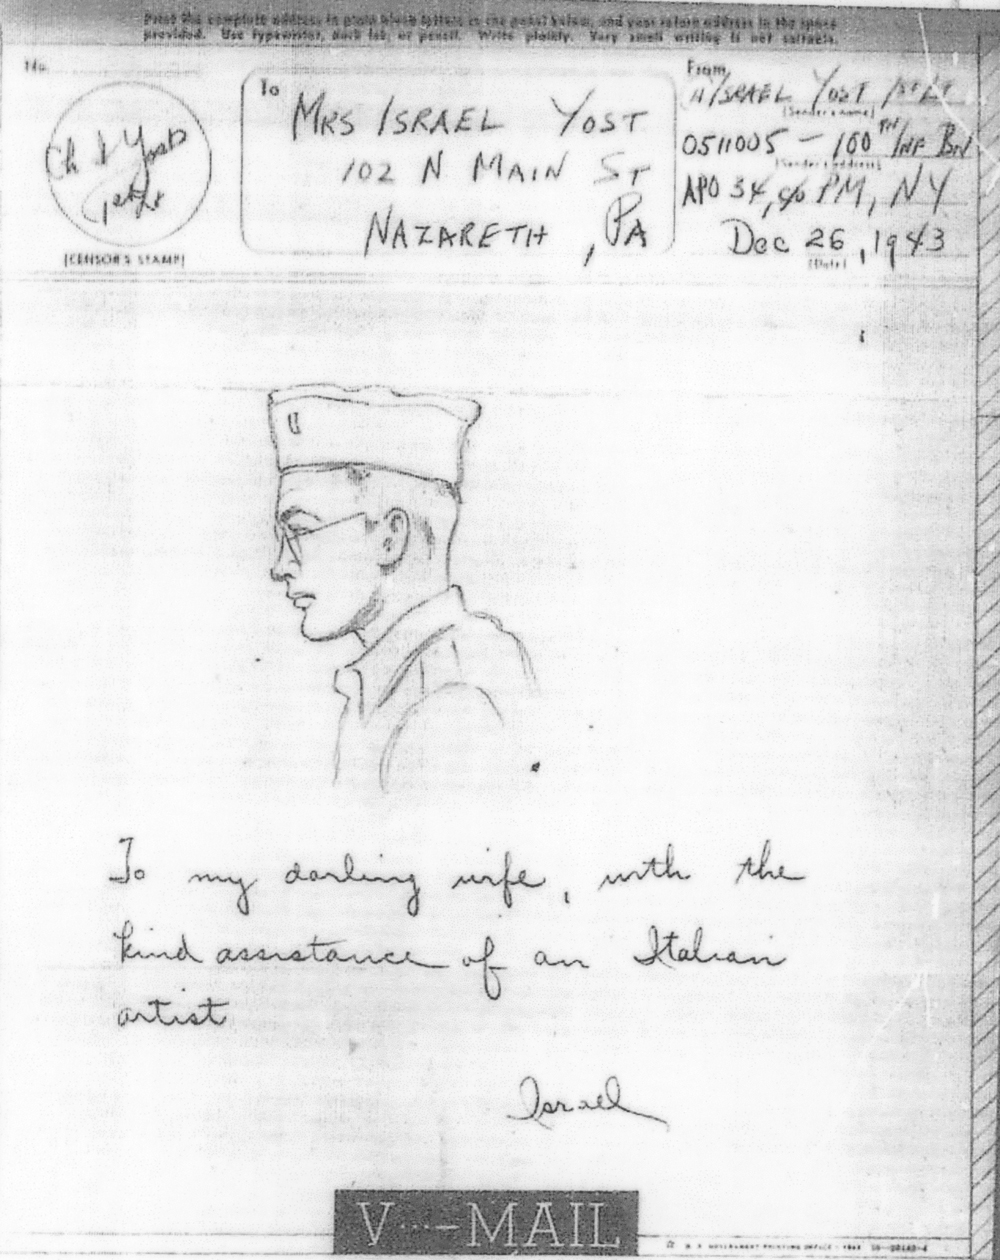 Print the complete address in plain block letters in the panel below, and your return address in the space
provided. Use typewriter, dark ink, or pencil. Write plainly. Very small writing is not suitable.
To
MRS ISRAEL YOST
102 N MAIN ST
NAZARETH, PA
From
ISRAEL YOST 1ST LT
(Sender's name)
0511005 - 100TH INF BN
(Sender's address)
APO 34, c/o PM, NY
Dec 26, 1943
(Date)
Yost
(CENSOR'S STAMP)
To my darling wife, with the
kind assistance of an Italian
artist
Israel
V···—MAIL